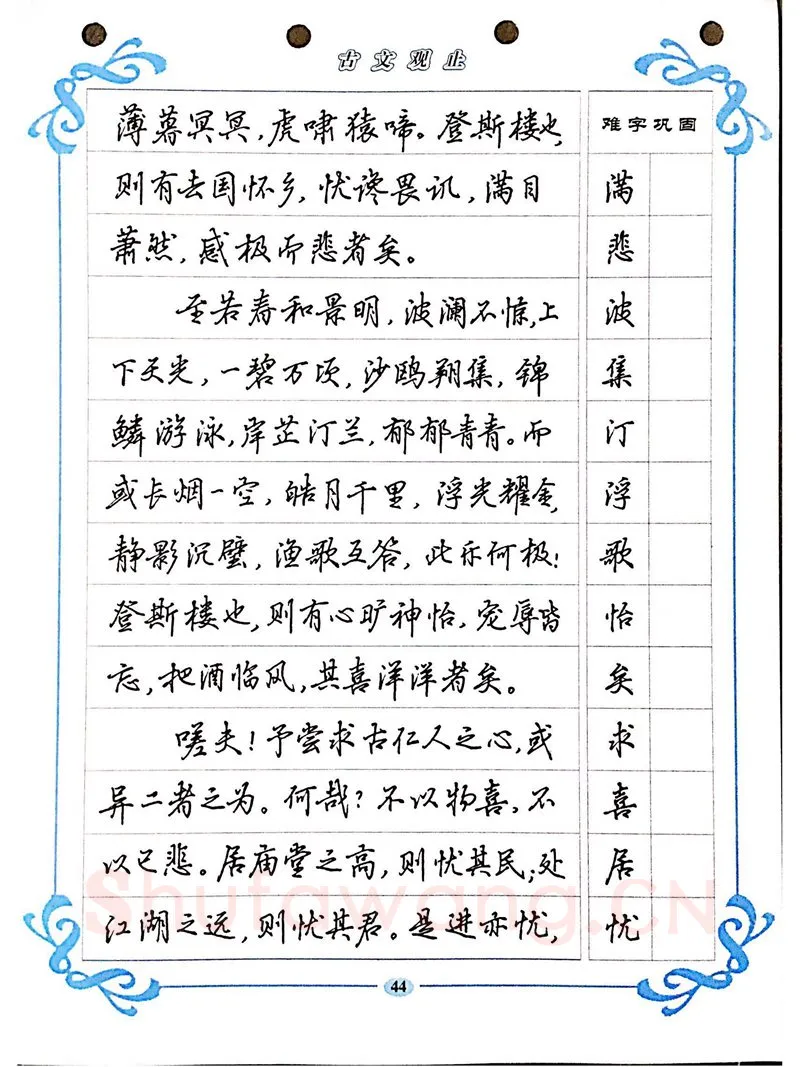 古文观止
薄暮冥冥，虎啸猿啼。登斯楼也，
则有去国怀乡，忧谗畏讥，满目
萧然，感极而悲者矣。
至若春和景明，波澜不惊，上
下天光，一碧万顷，沙鸥翔集，锦
鳞游泳，岸芷汀兰，郁郁青青。而
或长烟一空，皓月千里，浮光耀金，
静影沉璧，渔歌互答，此乐何极！
登斯楼也，则有心旷神怡，宠辱皆
忘，把酒临风，其喜洋洋者矣。
嗟夫！予尝求古仁人之心，或
异二者之为。何哉？不以物喜，不
以己悲。居庙堂之高，则忧其民；处
江湖之远，则忧其君。是进亦忧，
难字巩固
满
悲
波
集
汀
浮
歌
怡
矣
求
喜
居
忧
Shufawang.CN
44